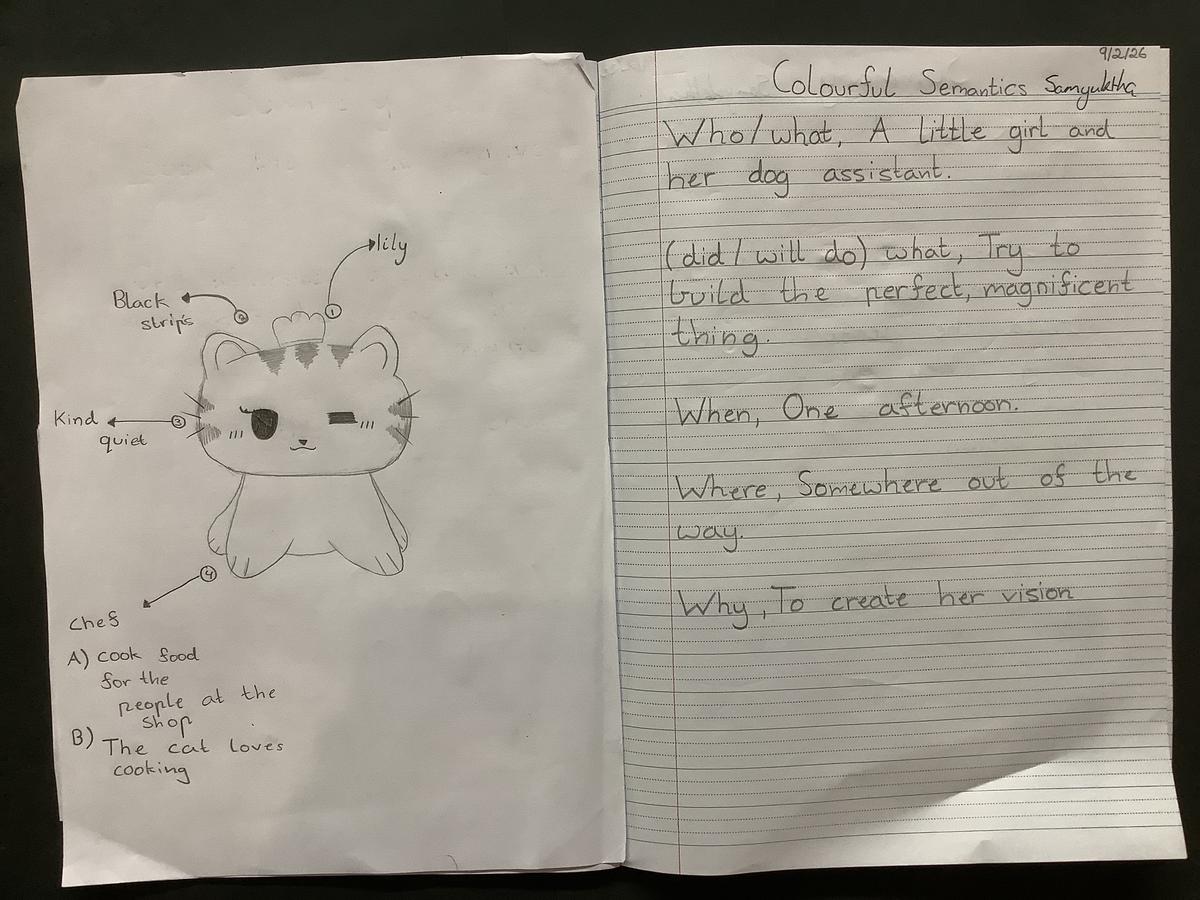 lily
①
Black
strips
②
Kind
quiet
③
④
Chef
A) Cook food
for the
people at the
shop
B) The cat loves
cooking
9/2/26
Colourful Semantics Samyuktha
Who/what, A little girl and
her dog assistant.
(did/will do) what, Try to
build the perfect, magnificent
thing.
When, One afternoon.
Where, Somewhere out of the
way.
Why, To create her vision